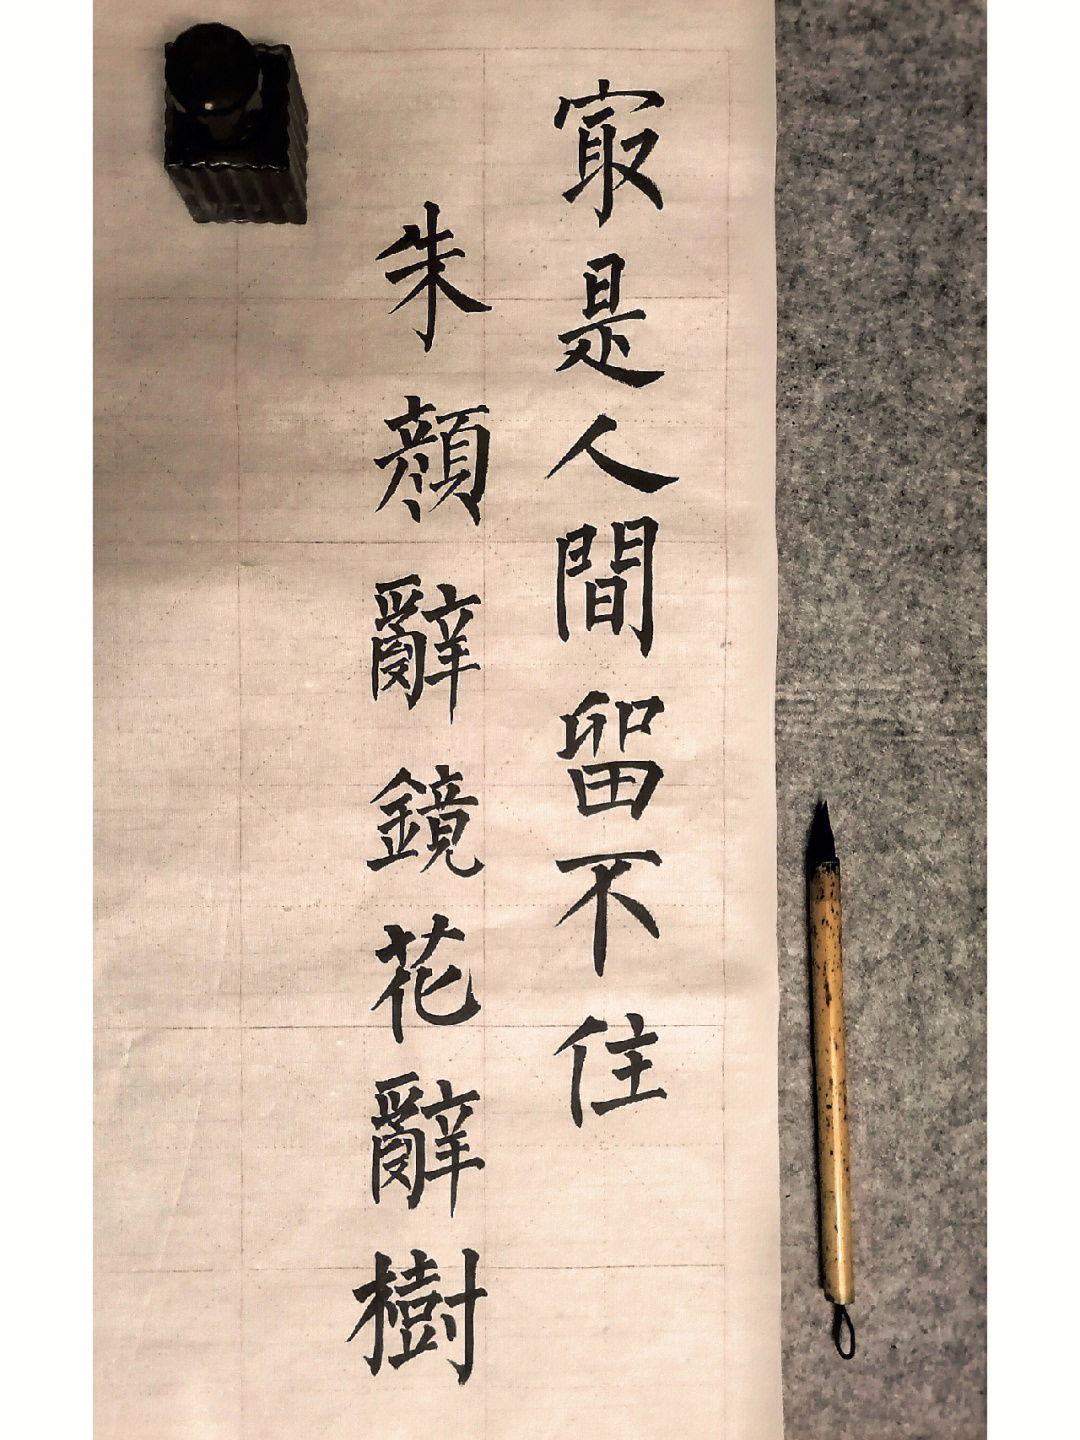 冣是人間留不住
朱顔辭鏡花辭樹